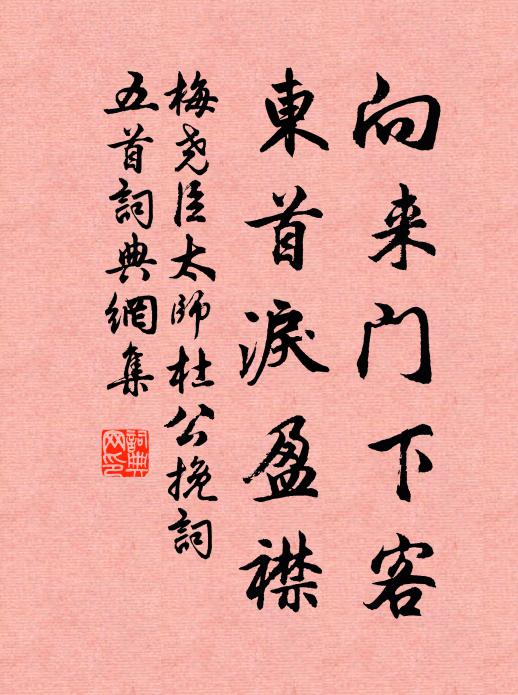 向来门下客
東首淚盈襟
梅尧臣太师杜公挽詞
五首詞典網集
詞典
网印